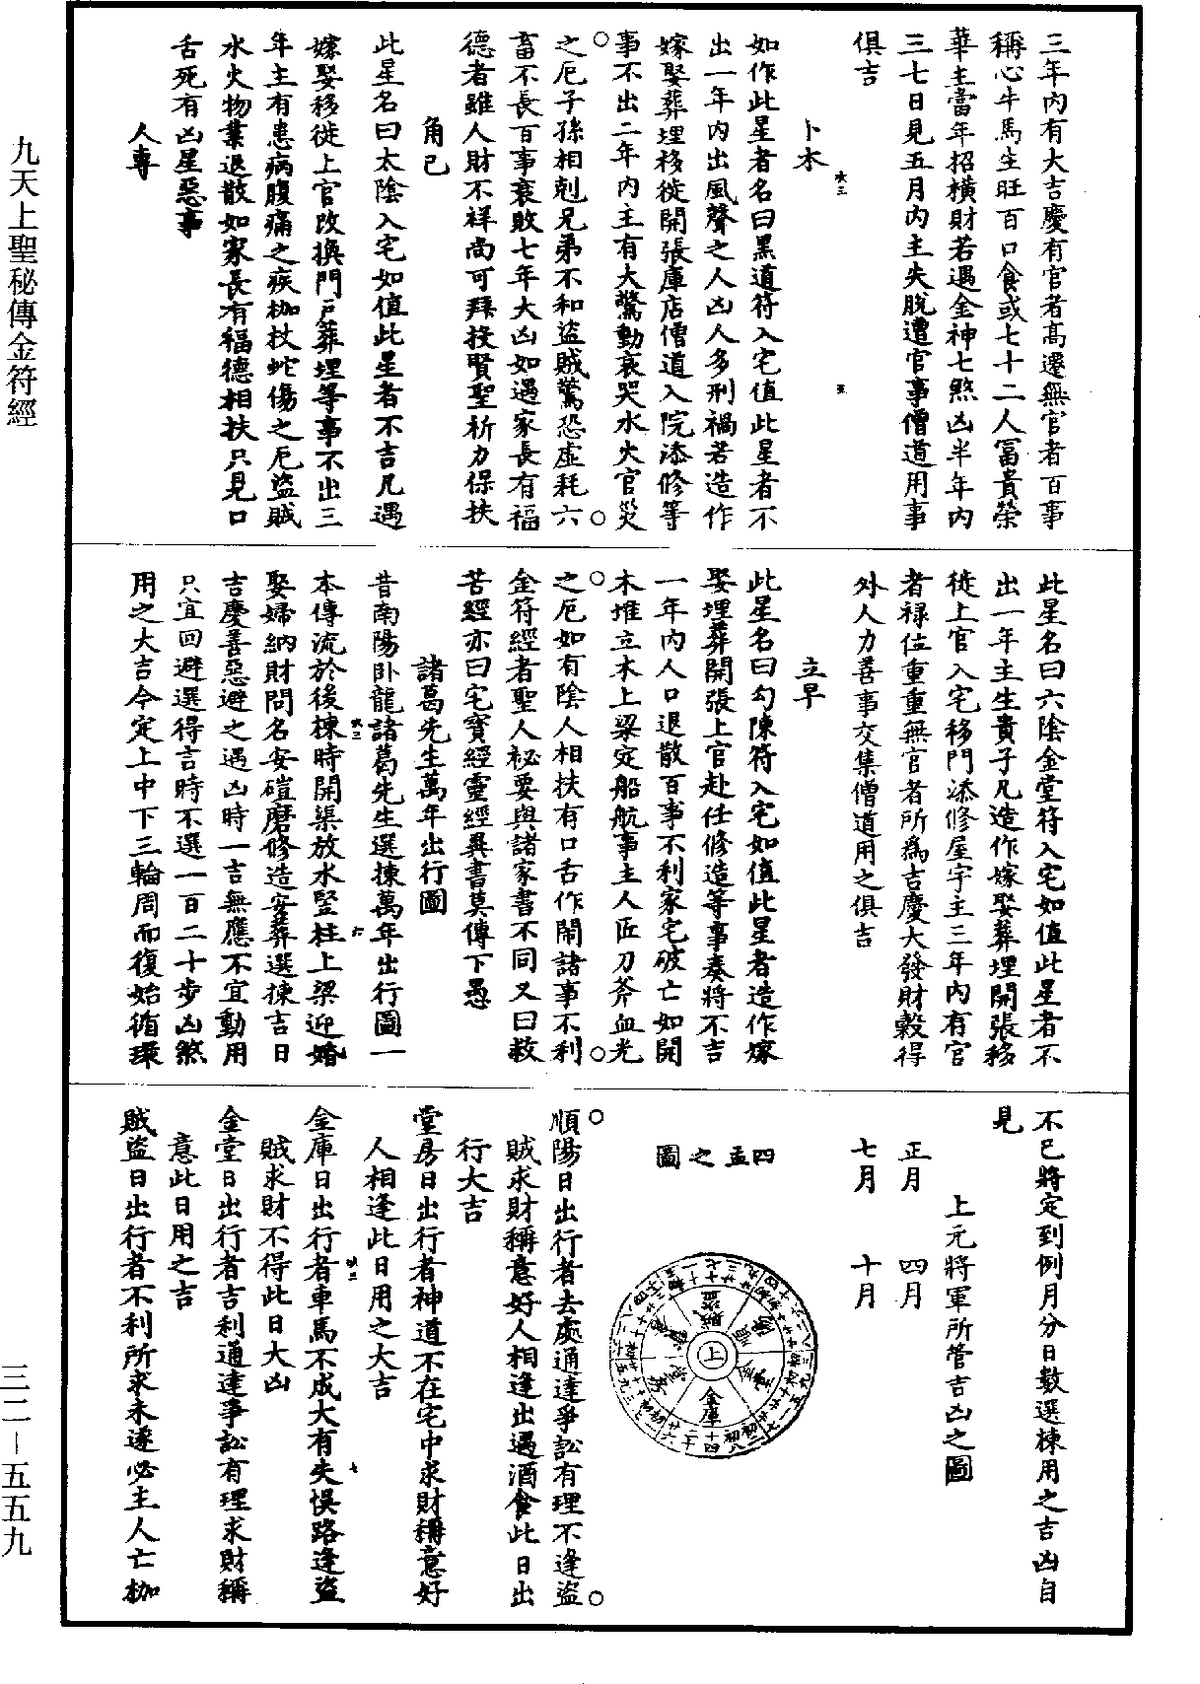 三年內有大吉慶有官者高遷無官者百事
稱心牛馬生旺百口食或七十二人冨貴榮
華主當年招橫財若遇金神七煞凶半年內
三七日見五月內主失脫遭官事僧道用事
俱吉
卜木
如作此星者名曰黑道符入宅值此星者不
出一年內出風聲之人凶人多刑禍若造作
嫁娶葬埋移徙開張庫店僧道入院添修等
事不出二年內主有大驚動哀哭水火官災
之厄子孫相剋兄弟不和盜賊驚恐虛耗六
畜不長百事衰敗七年大凶如遇家長有福
德者雖人財不祥尚可拜投賢聖祈力保扶
角己
此星名曰太陰入宅如值此星者不吉凡遇
嫁娶移徙上官改換門戶葬埋等事不出三
年主有患病腹痛之疾枷杖蛇傷之厄盜賊
水火物業退散如家長有福德相扶只見口
舌死有凶星惡事
人專
此星名曰六陰金堂符入宅如值此星者不
出一年主生貴子凡造作嫁娶葬埋開張移
徙上官入宅移門添修屋宇主三年內有官
者祿位重重無官者所為吉慶大發財穀得
外人力善事交集僧道用之俱吉
立早
此星名曰勾陳符入宅如值此星者造作嫁
娶埋葬開張上官赴任修造等事奏將不吉
一年內人口退散百事不利家宅破亡如開
木堆立木上梁定船航事主人匠刀斧血光
之厄如有陰人相扶有口舌作鬧諸事不利
金符經者聖人祕要與諸家書不同又曰救
苦經亦曰宅寶經靈經異書莫傳下愚
諸葛先生萬年出行圖
昔南陽臥龍諸葛先生選揀萬年出行圖一
本傳流於後揀時開渠放水豎柱上梁迎婚
娶婦納財問名安磑磨修造安葬選揀吉日
吉慶善惡避之遇凶時一吉無應不宜動用
只宜回避選得言時不選一百二十步凶煞
用之大吉今定上中下三輪周而復始循環
不已將定到例月分日數選揀用之吉凶自
見
上元將軍所管吉凶之圖
正月 四月
七月 十月
四孟之圖
上
金庫
順陽日出行者去處通達爭訟有理不逢盜
賊求財稱意好人相逢出遇酒食此日出
行大吉
堂房日出行者神道不在宅中求財稱意好
人相逢此日用之大吉
金庫日出行者車馬不成大有失悞路逢盜
賊求財不得此日大凶
金堂日出行者吉利通達爭訟有理求財稱
意此日用之吉
賊盜日出行者不利所求未遂必主人亡枷
九天上聖秘傳金符經
三二－五五九